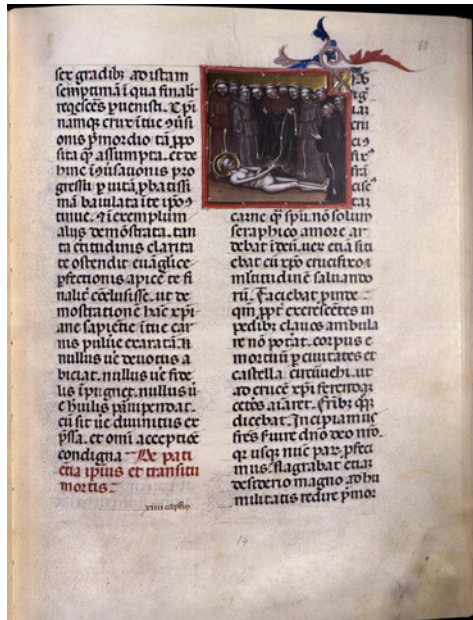 60
sex gradibꝫ ad istam
septimā i qua finali
reqesces puenisti. Xpi
namqꝫ crux ītue 9ūsi
onis pmordio tā ppo
sita qꝫ assumpta. et de
hinc i9ūsationis pro
gressu p uitā pbatissi
mā baiulata ite ipō9
tinue. ꝛ i exemplum
alijs demōstrata. tan
ta certitudinis clarita
te ostendit euāgelice
pfectionis apicē te fi
nalit cōclusisse. ut de
mostrationē hāc xpi
ane sapiētie ī tue car
nis puluē exaratā.
nullus ue deuotus a
biciat. nullus ue fide
lis ipugnet. nullus ū
e huilis paruipendat.
cū sit ue diuinitus ex
pssa. et omi acceptiōe
condigna. De pati
ētia ipius et transitu
mortis.
xiiii capm
carne qꝫ spū. nō solum
seraphico amore ar
debat ī deū. uerꝫ etiā siti
ebat cū xpō crucifixo
mltitudinē saluando
rū. Faciebat
qm ppt excrescētes in
pedibꝫ clauos ambula
re nō potat. corpus e
mortuū p ciuitates et
castella circūuehi. ut
ad crucē xpi ferendaꝫ
cetos aīaret. Fribꝫ qꝫ
dicebat. Incipiamus
frēs ſuire dno deo nro.
qꝛ usqꝫ nūc par pfeci
mus. Flagrabat etiaꝫ
desiderio magno ad hu
militatis redire pmor
14